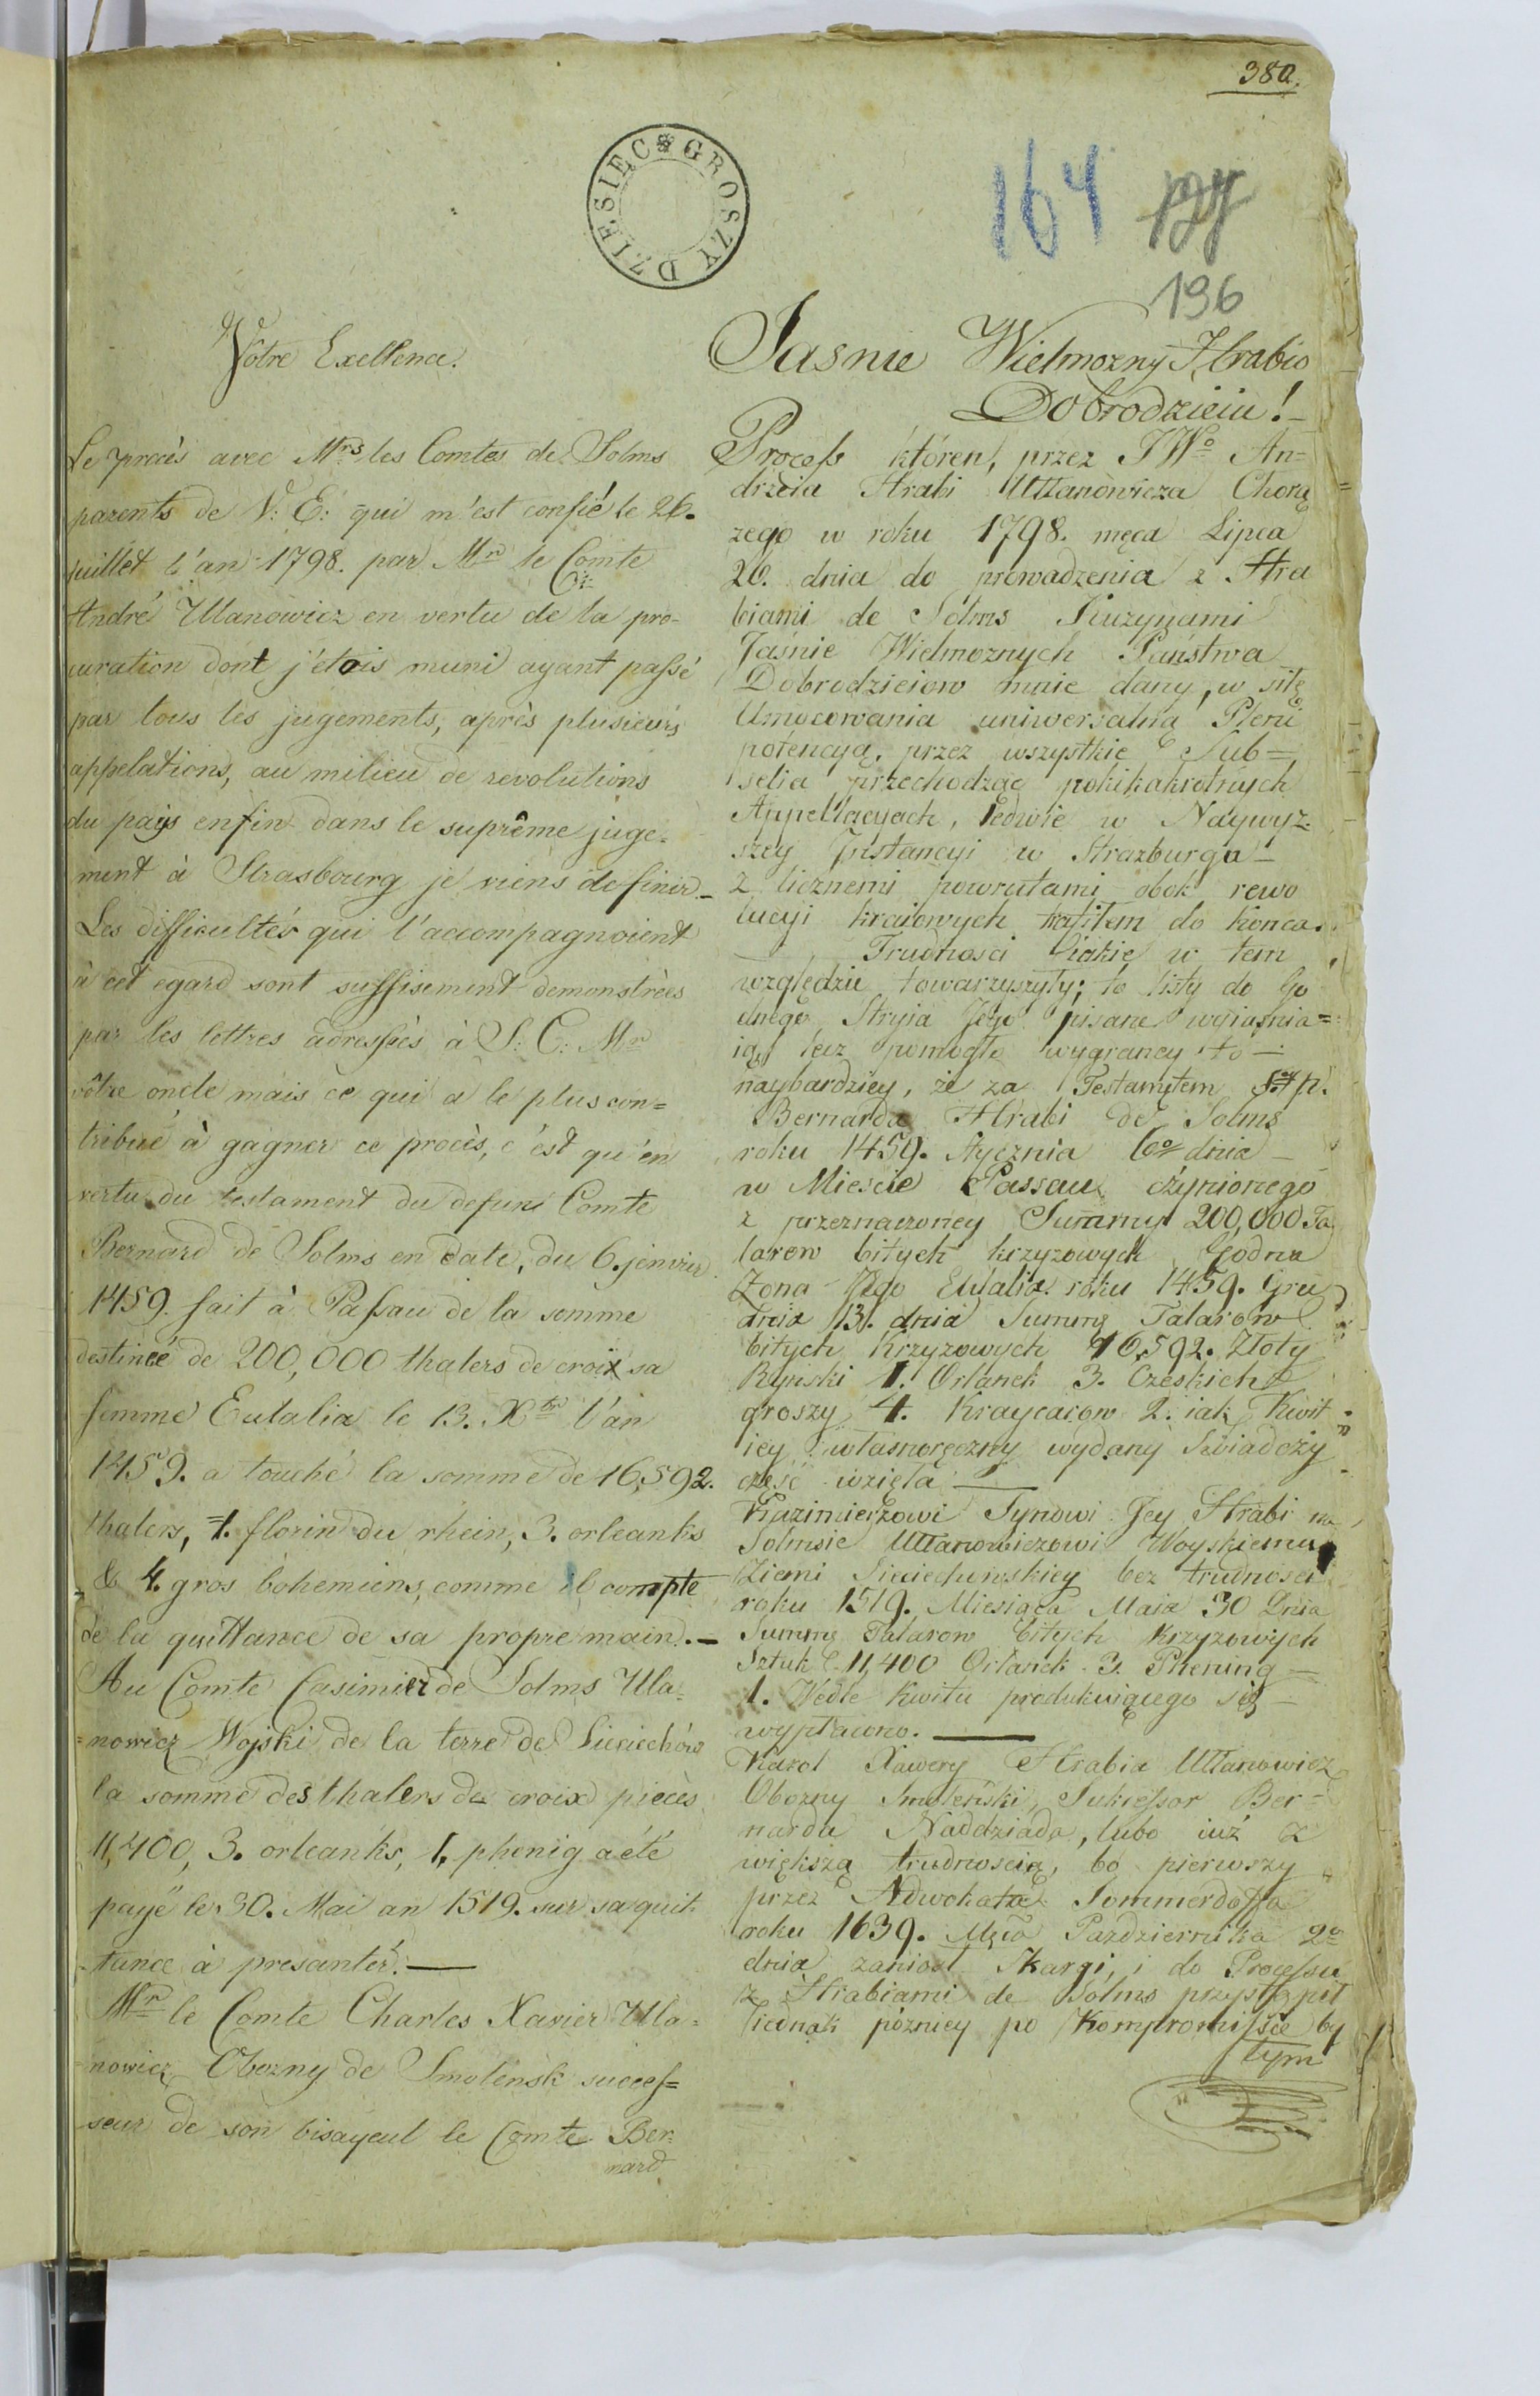 380.
DZIESIEC GROSZY
164
196
Vôtre Exellence.
Le procès avec Mrs les Comtes de Solms
parents de V: E: qui m'est confié le 26.
juillet l'an 1798. par Mr le Comte
André Ulanowicz en vertu de la pro-
curation dont j'étois muni ayant passé
par tous les jugements, après plusieurs
appelations, au milieu de revolutions
du pays enfin dans le suprême juge-
ment à Strasbourg je viens de finir.
Les difficultés qui l'accompagnoient
à cet egard sont suffisement demonstrées
par les lettres adressés à S: C: Mr
vôtre oncle mais ce qui a le plus con=
tribué à gagner ce procès, c'est qu'en
vertu du testament du defunt Comte
Bernard de Solms en date, du 6. jenvier
1459. fait à Passau de la somme
destinée de 200,000 thalers de croix sa
femme Eutalia le 13. Xbr l'an
1459. a touché la somme de 16,592.
thalers, 1. florin du rhein, 3. orleanks
& 4. gros bohemiens, comme il compte
de la quittance de sa propre main.
Au Comte Casimier de Solms Ula-
=nowicz Wojski de la terre de Sieciechów
la somme des thalers de croix pieces
11,400, 3. orleanks, 1. phenig a été
payé le 30. Mai an 1519. sur sa quit-
tance à presanter.
Mr le Comte Charles Xavier Ula=
=nowicz Obozny de Smolensk succes=
seur de son bisayeul le Comte Ber-
nard
Jasnie Wielmozny Hrabio
Dobrodzieiu!
Process któren, przez JWo An=
drzeia Hrabi Ułłanowicza Chorą
zego w roku 1798. męca Lipca
26. dnia do prowadzenia z Hra
biami de Solms Kuzynami
Jaśnie Wielmoznych Państwa
Dobrodzieiow mnie dany, w siłę
Umocowania uniwersalną Pleni
potencyą, przez wszystkie Sub=
selia przechodząc pokikakrotnych
Appellacyach, ledwie w Naywyz-
szey Instancyi w Strazburgu
z licznemi powrutami obok rewo
lucyi kraiowych trafiłem do konca.
Trudnosci iakie w tem
względzie towarzyszyły; to listy do Go
dnego Stryia Jego pisane wyiaśnia=
ią, lecz pomogło wygraney to
naybardziey, że za Testamętem ś. p.
Bernarda Hrabi de Solms
roku 1459. stycznia 6o dnia
w Mieście Passau czynionego
z przeznaczoney Summy 200,000 Ta
larow bitych krzyzowych Godna
Zona Jego Eutalia roku 1459. Gru
dnia 13. dnia Summę Talarow
bitych Krzyzowych 16,592. Złoty
Ryński 1. Orlanek 3. Czeskich
groszy 4. Kraycarow 2. iak Kwit
iey własnoręczny wydany świadczy
część wzięła
Kazimierzowi Synowi Jey Hrabi na
Solmsie Ułłanowiczowi Woyskiemu
Ziemi Sieciechowskiey bez trudnosci
roku 1519. Miesiąca Maia 30 Dnia
Summę Talarow bitych Krzyzowych
Sztuk 11,400 Orlanek 3. Phening
1. Wedle Kwitu produkuiącego się
wypłacono.
Karol Xawery Hrabia Ułłanowicz
Obozny Smoleński, Sukcessor Ber=
narda Naddziada, lubo iuż z
większą trudnoscią, bo pierwszy
przez Adwokata Sommerdoffa
roku 1639. Męca Pazdziernika 2o
dnia zaniosł Skargi, i do Processu
z Hrabiami de Solms przystąpił
iednak pózniey po Kompromissie by
tym